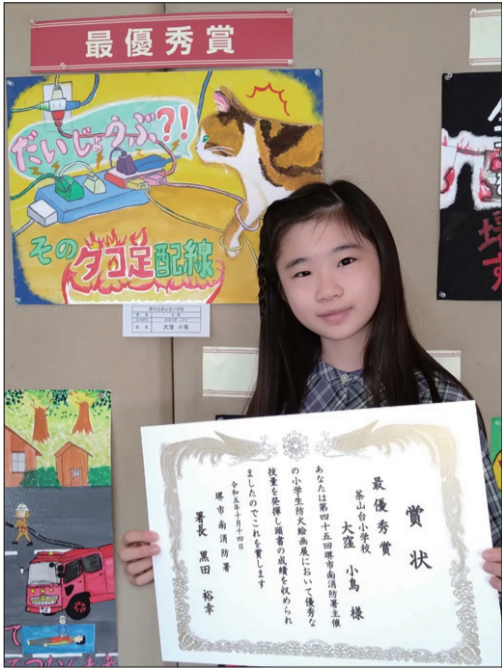 最優秀賞
だいじょうぶ?!
その
タコ足配線
大窪 小鳥
賞状
最優秀賞
茶山台小学校
大窪 小鳥 様
あなたは第四十五回堺市南消防署主催
の小学生防火絵画展において優秀な
技量を発揮し頭書の成績を収められ
ましたのでこれを賞します
令和五年十月十四日
堺市南消防署
署長 黒田 裕幸